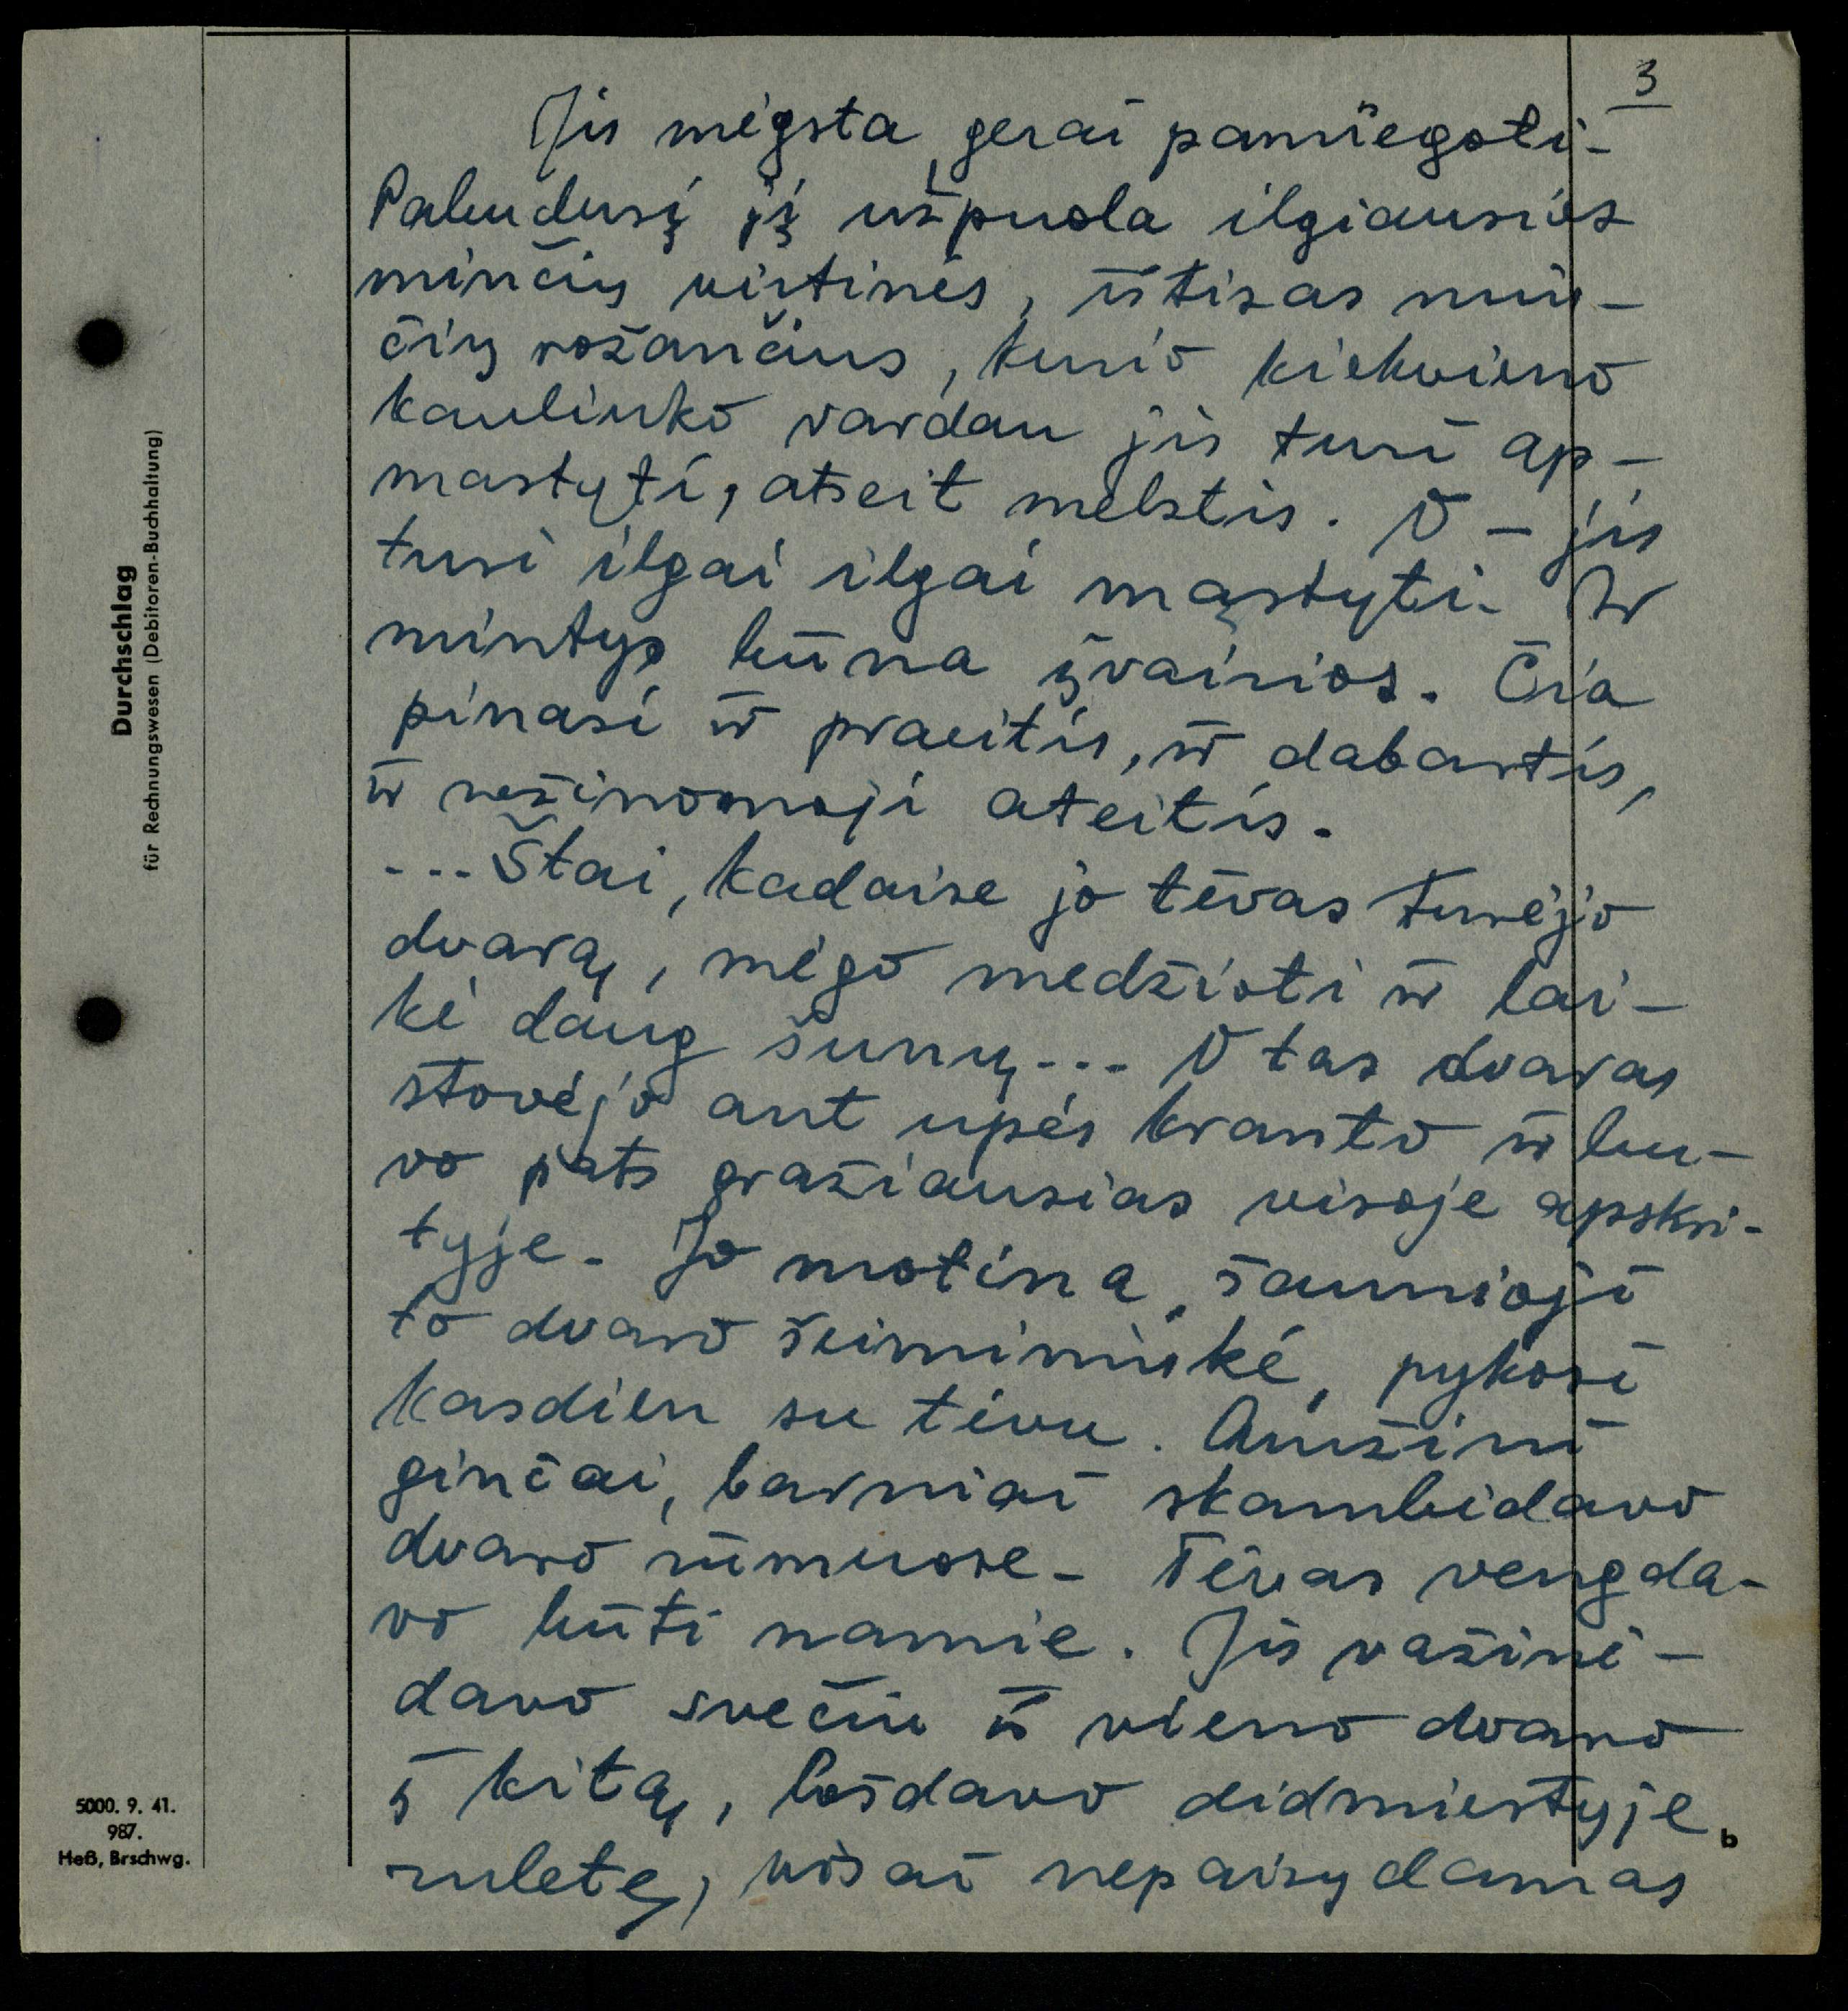 3
Jis mėgsta gerai pamiegoti.
Pabudusį jį užpuola ilgiausios
minčių virtinės, ištisas min-
čių rožančius, kurio kiekvieno
kauliuko vardan jis turi ap-
mastyti, atseit melstis. O – jis
turi ilgai ilgai mąstyti. Ir
mintys būna įvairios. Čia
pinasi ir praeitis, ir dabartis,
ir nežinomoji ateitis.
... Štai, kadaise jo tėvas turėjo
dvarą, mėgo medžioti ir lai-
kė daug šunų... O tas dvaras
stovėjo ant upės kranto ir bu-
vo pats gražiausias visoje apskri-
tyje. Jo motina, šaunioji
to dvaro šeimininkė, pykosi
kasdien su tėvu. Amžini
ginčai, barniai skambėdavo
dvaro rūmuose. Tėvas vengda-
vo būti namie. Jis važinė-
davo svečiu iš vieno dvaro
į kitą, lošdavo didmiestyje
ruletę, visai nepaisydamas
Durchschlag
für Rechnungswesen (Debitoren-Buchhaltung)
5000. 9. 41.
987.
Heß, Brschwg.
b